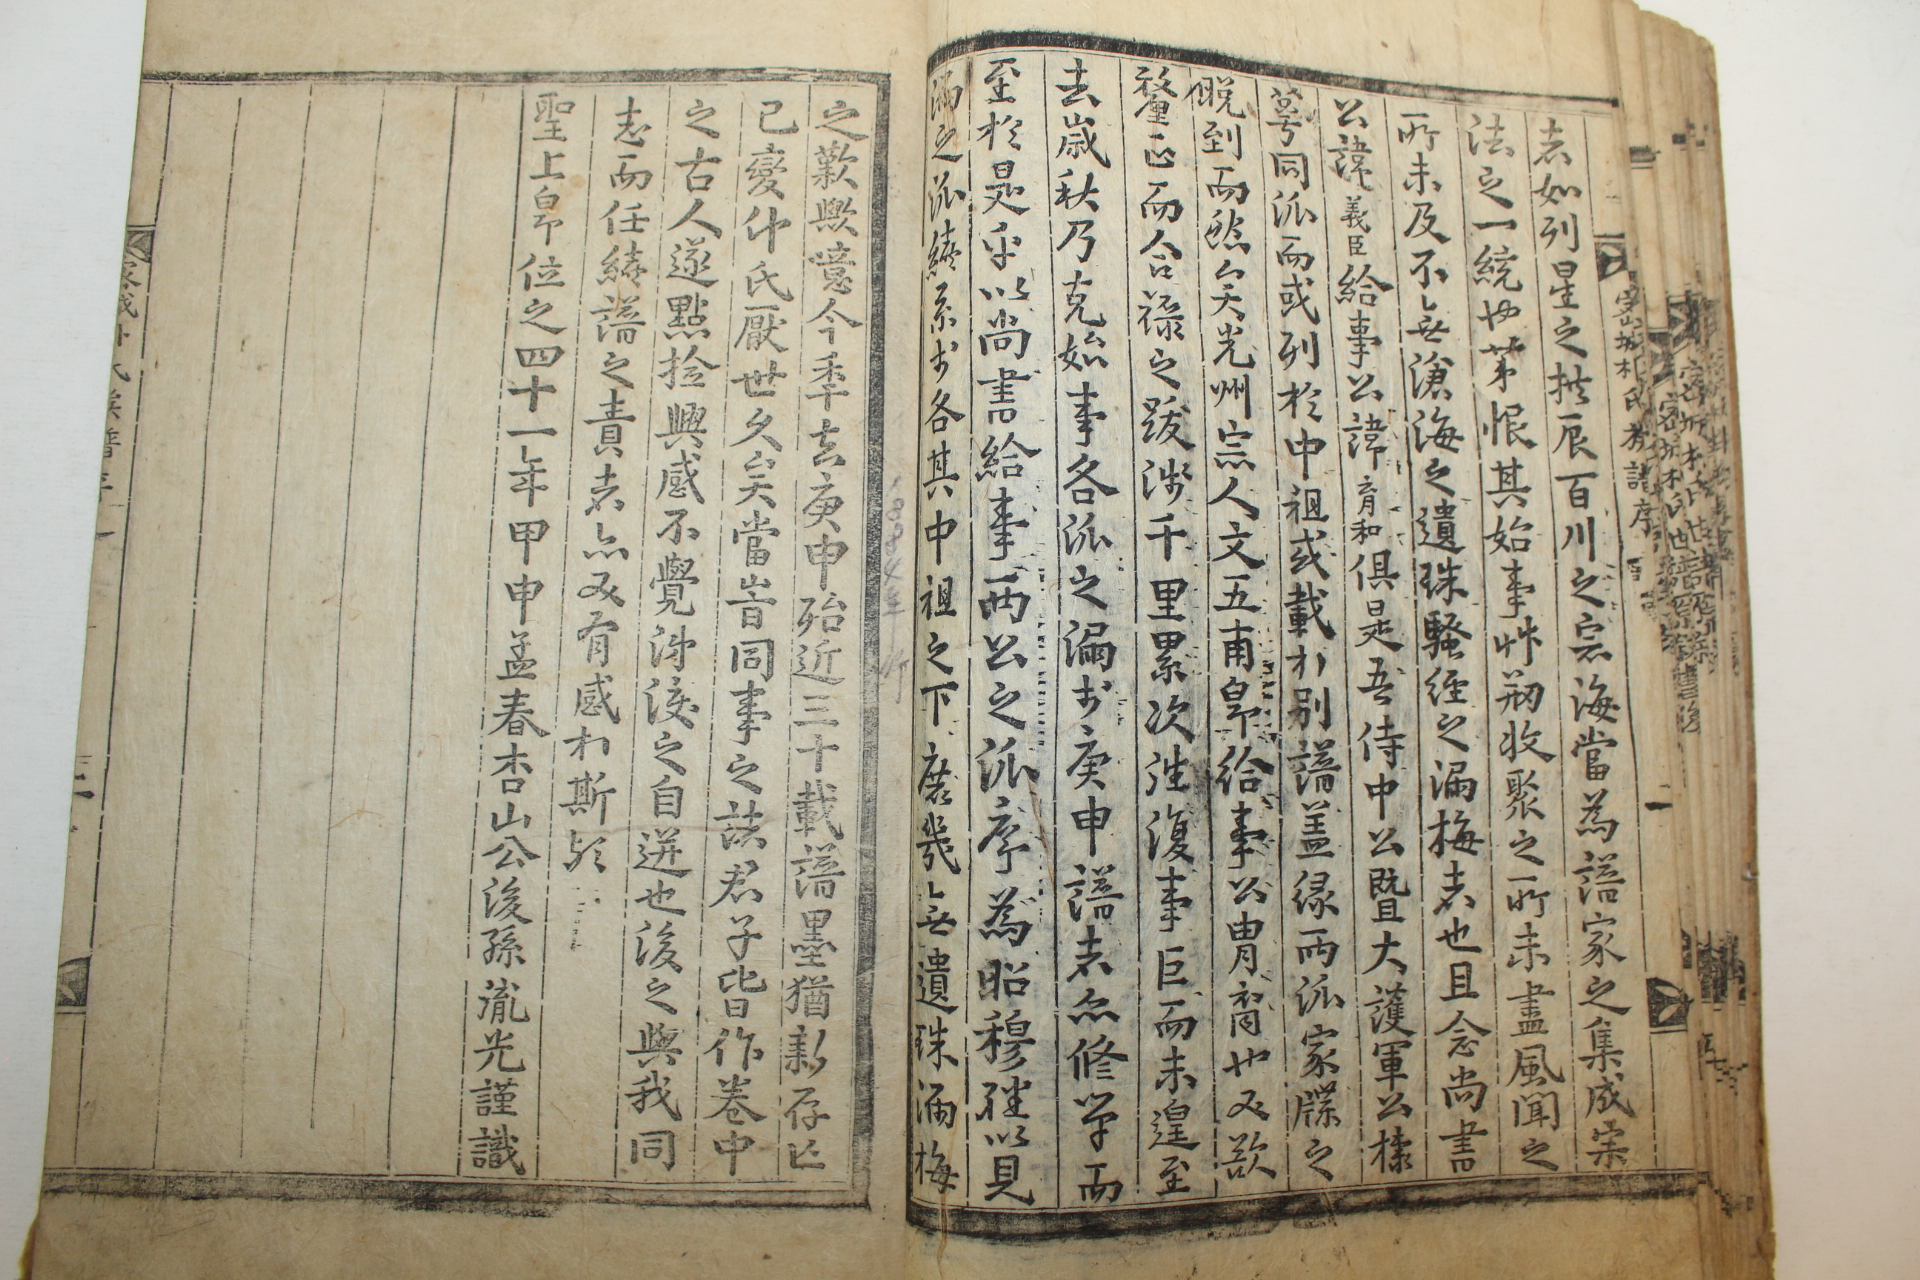 者如列星之拱辰百川之宗海當為譜家之集成宗
法之一統也苐恨其始事艸剏收聚之所未盡風聞之
所未及不無滄海之遺珠騷經之漏梅者也且念尚書
公諱義臣給事公諱育和俱是吾侍中公曁大護軍公棣
萼同派而或列於中祖或載於別譜盖緣兩派家牒之
到而然矣光州宗人文五甫皐給事公胄裔也又欲
釐正而合禄之跋涉千里累次往復事巨而未遑至
去歲秋乃克始事各派之漏於庚申譜者亦修單而
至於是乎以尚書給事兩公之派序為昭穆種以見
漏之派繡系於各其中祖之下庶幾無遺珠漏梅
之歎歟噫今季去庚申殆近三十載譜墨猶新存亡
已變仆氏厭世久矣當時同事之諸君子皆作卷中
之古人遂點撿興感不覺涕淚之自迸也後之與我同
志而任繡譜之責者亦又有感於斯歟
聖上卽位之四十一年甲申孟春杏山公後孫胤光謹識
密城朴氏族譜序
二
1884年